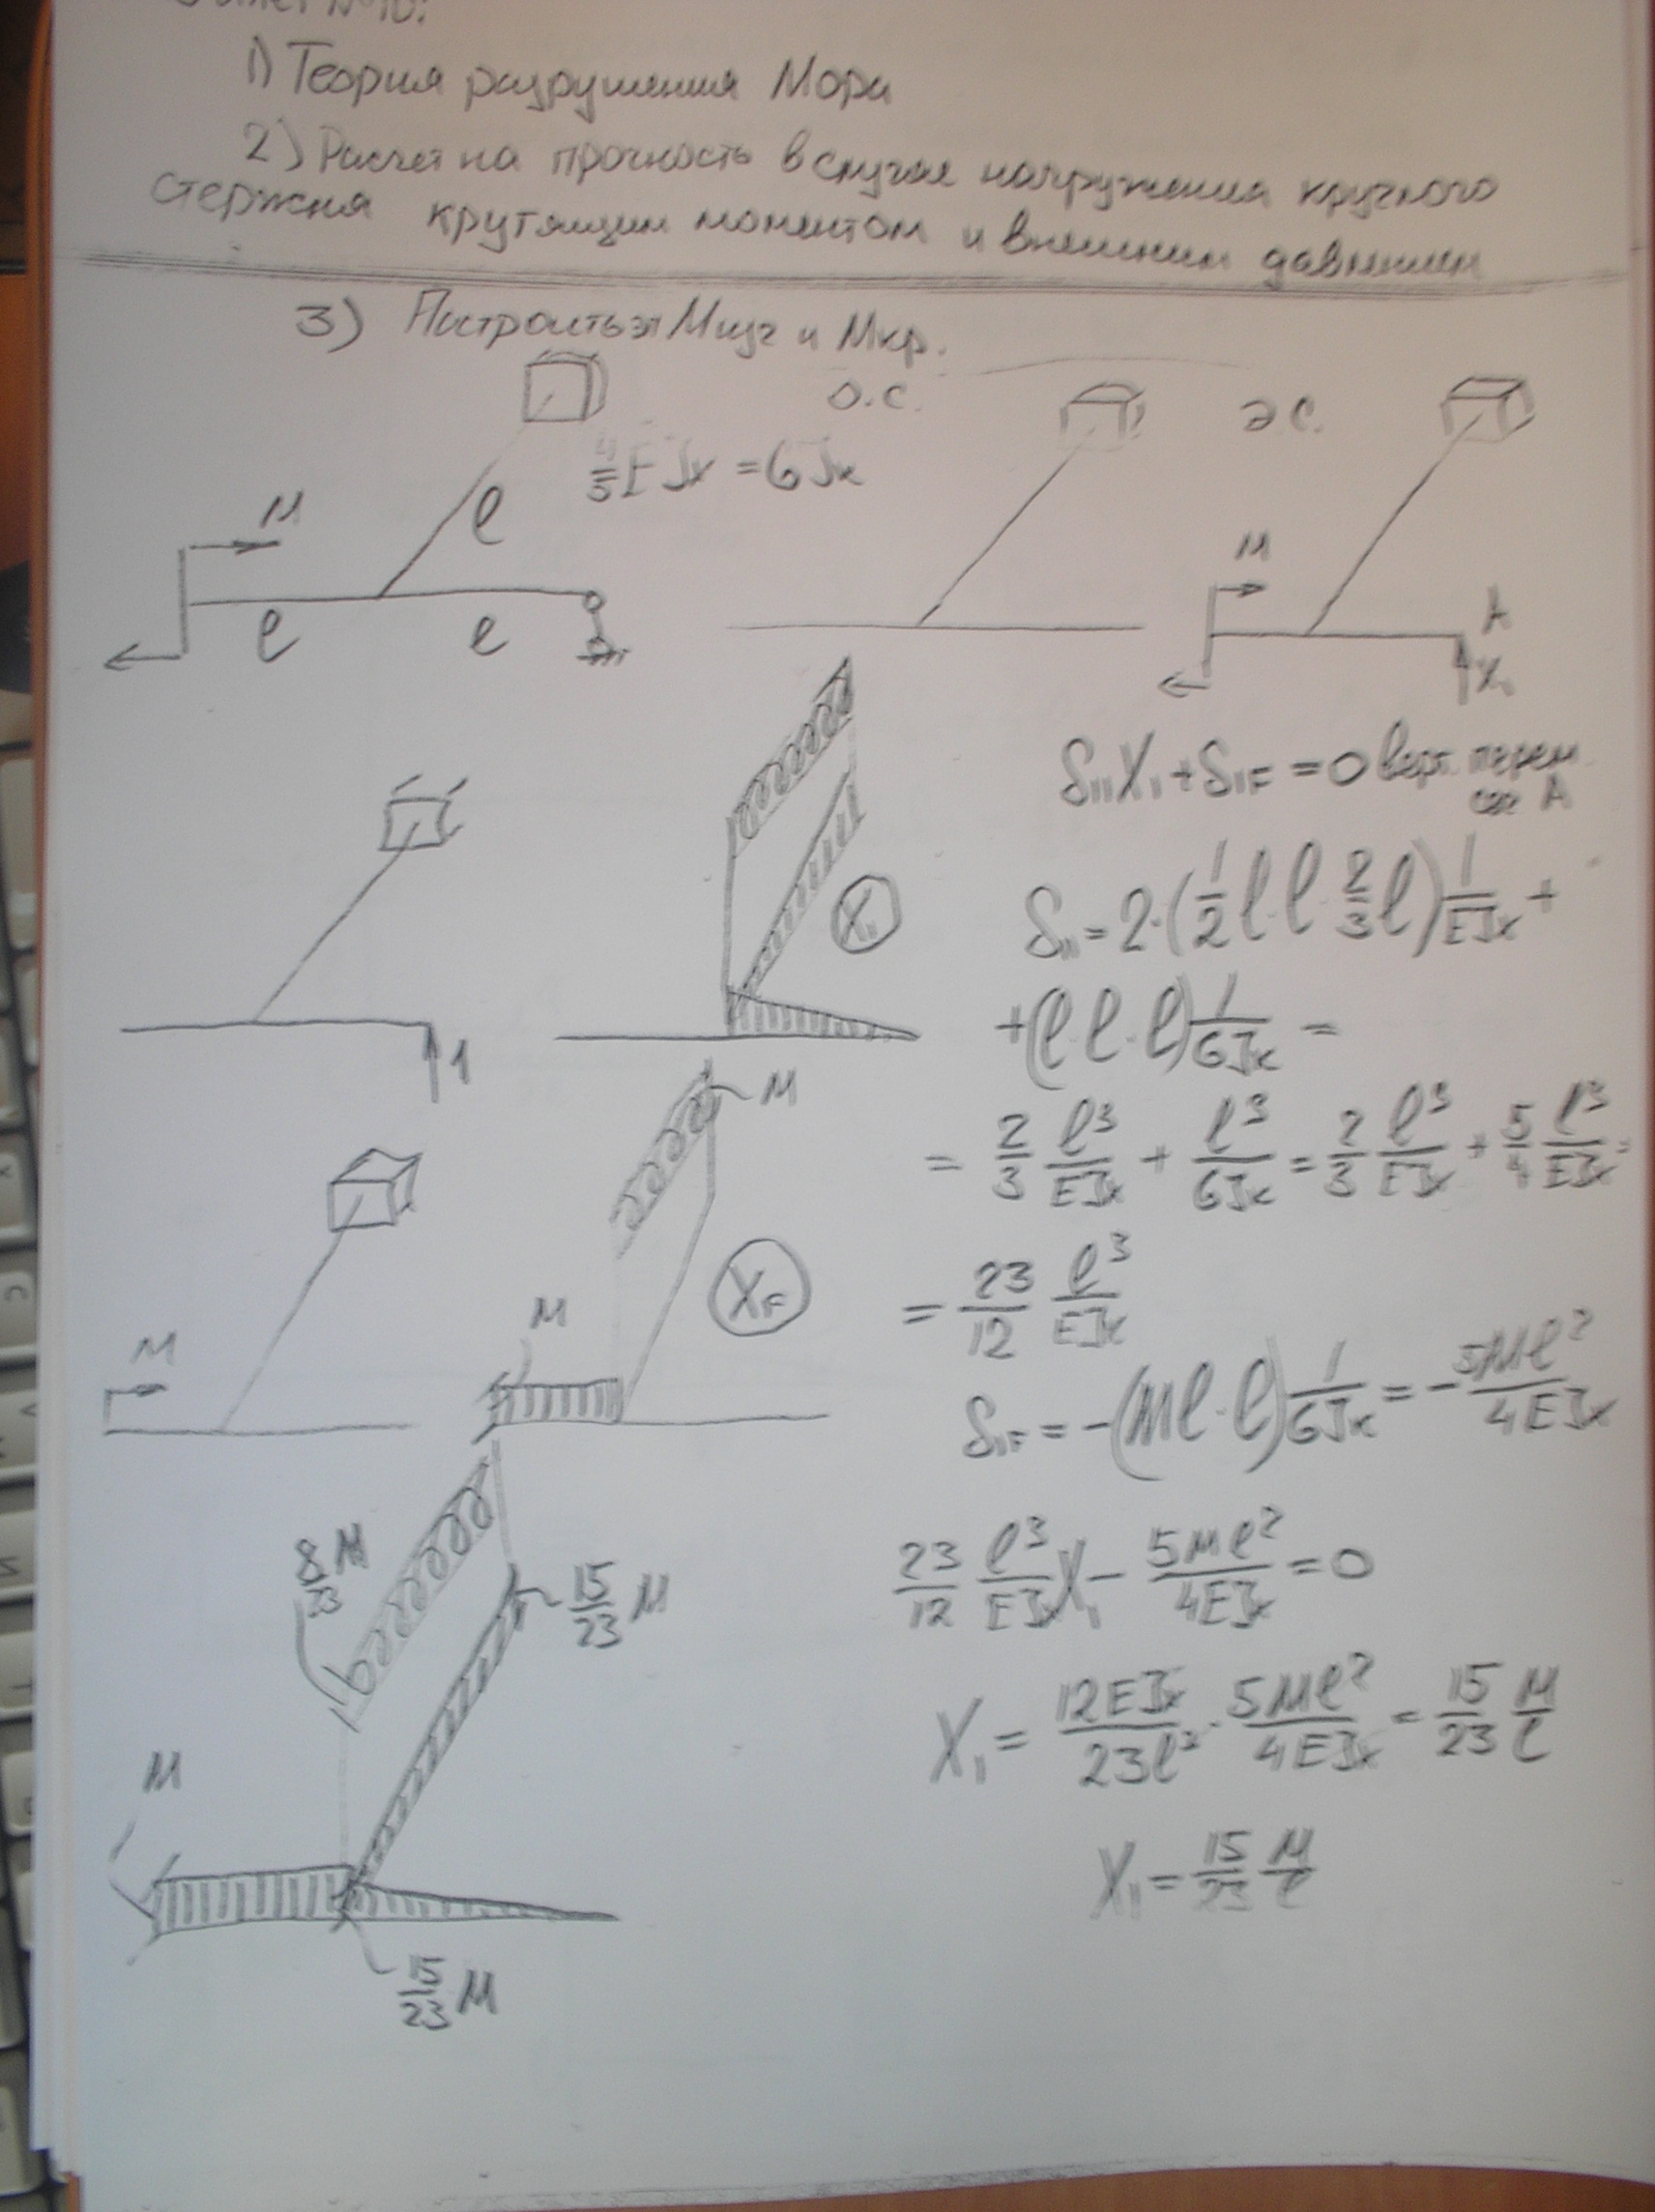 Билет №10:
1) Теория разрушения Мора
2) Расчет на прочность в случае нагружения круглого
стержня крутящим моментом и внешним давлением
3) Построить эп Mизг и Mкр.
О.С.
Э.С.
4/5 EJx = GJk
M
l
l
l
M
A
X₁
δ₁₁X₁ + δ₁F = 0 верт. перем.
A
1
X₁
δ₁₁ = 2·(1/2 l·l·2/3 l) 1/EJx +
+ (l·l·l) 1/GJk =
= 2/3 l³/EJx + l³/GJk = 2/3 l³/EJx + 5/4 l³/EJx =
= 23/12 l³/EJx
M
M
M
XF
δ₁F = -(Ml·l) 1/GJk = - 5Ml²/4EJx
23/12 l³/EJx X₁ - 5Ml²/4EJx = 0
X₁ = 12EJx/23l³ · 5Ml²/4EJx = 15/23 M/l
X₁ = 15/23 M/l
8/23 M
15/23 M
M
15/23 M